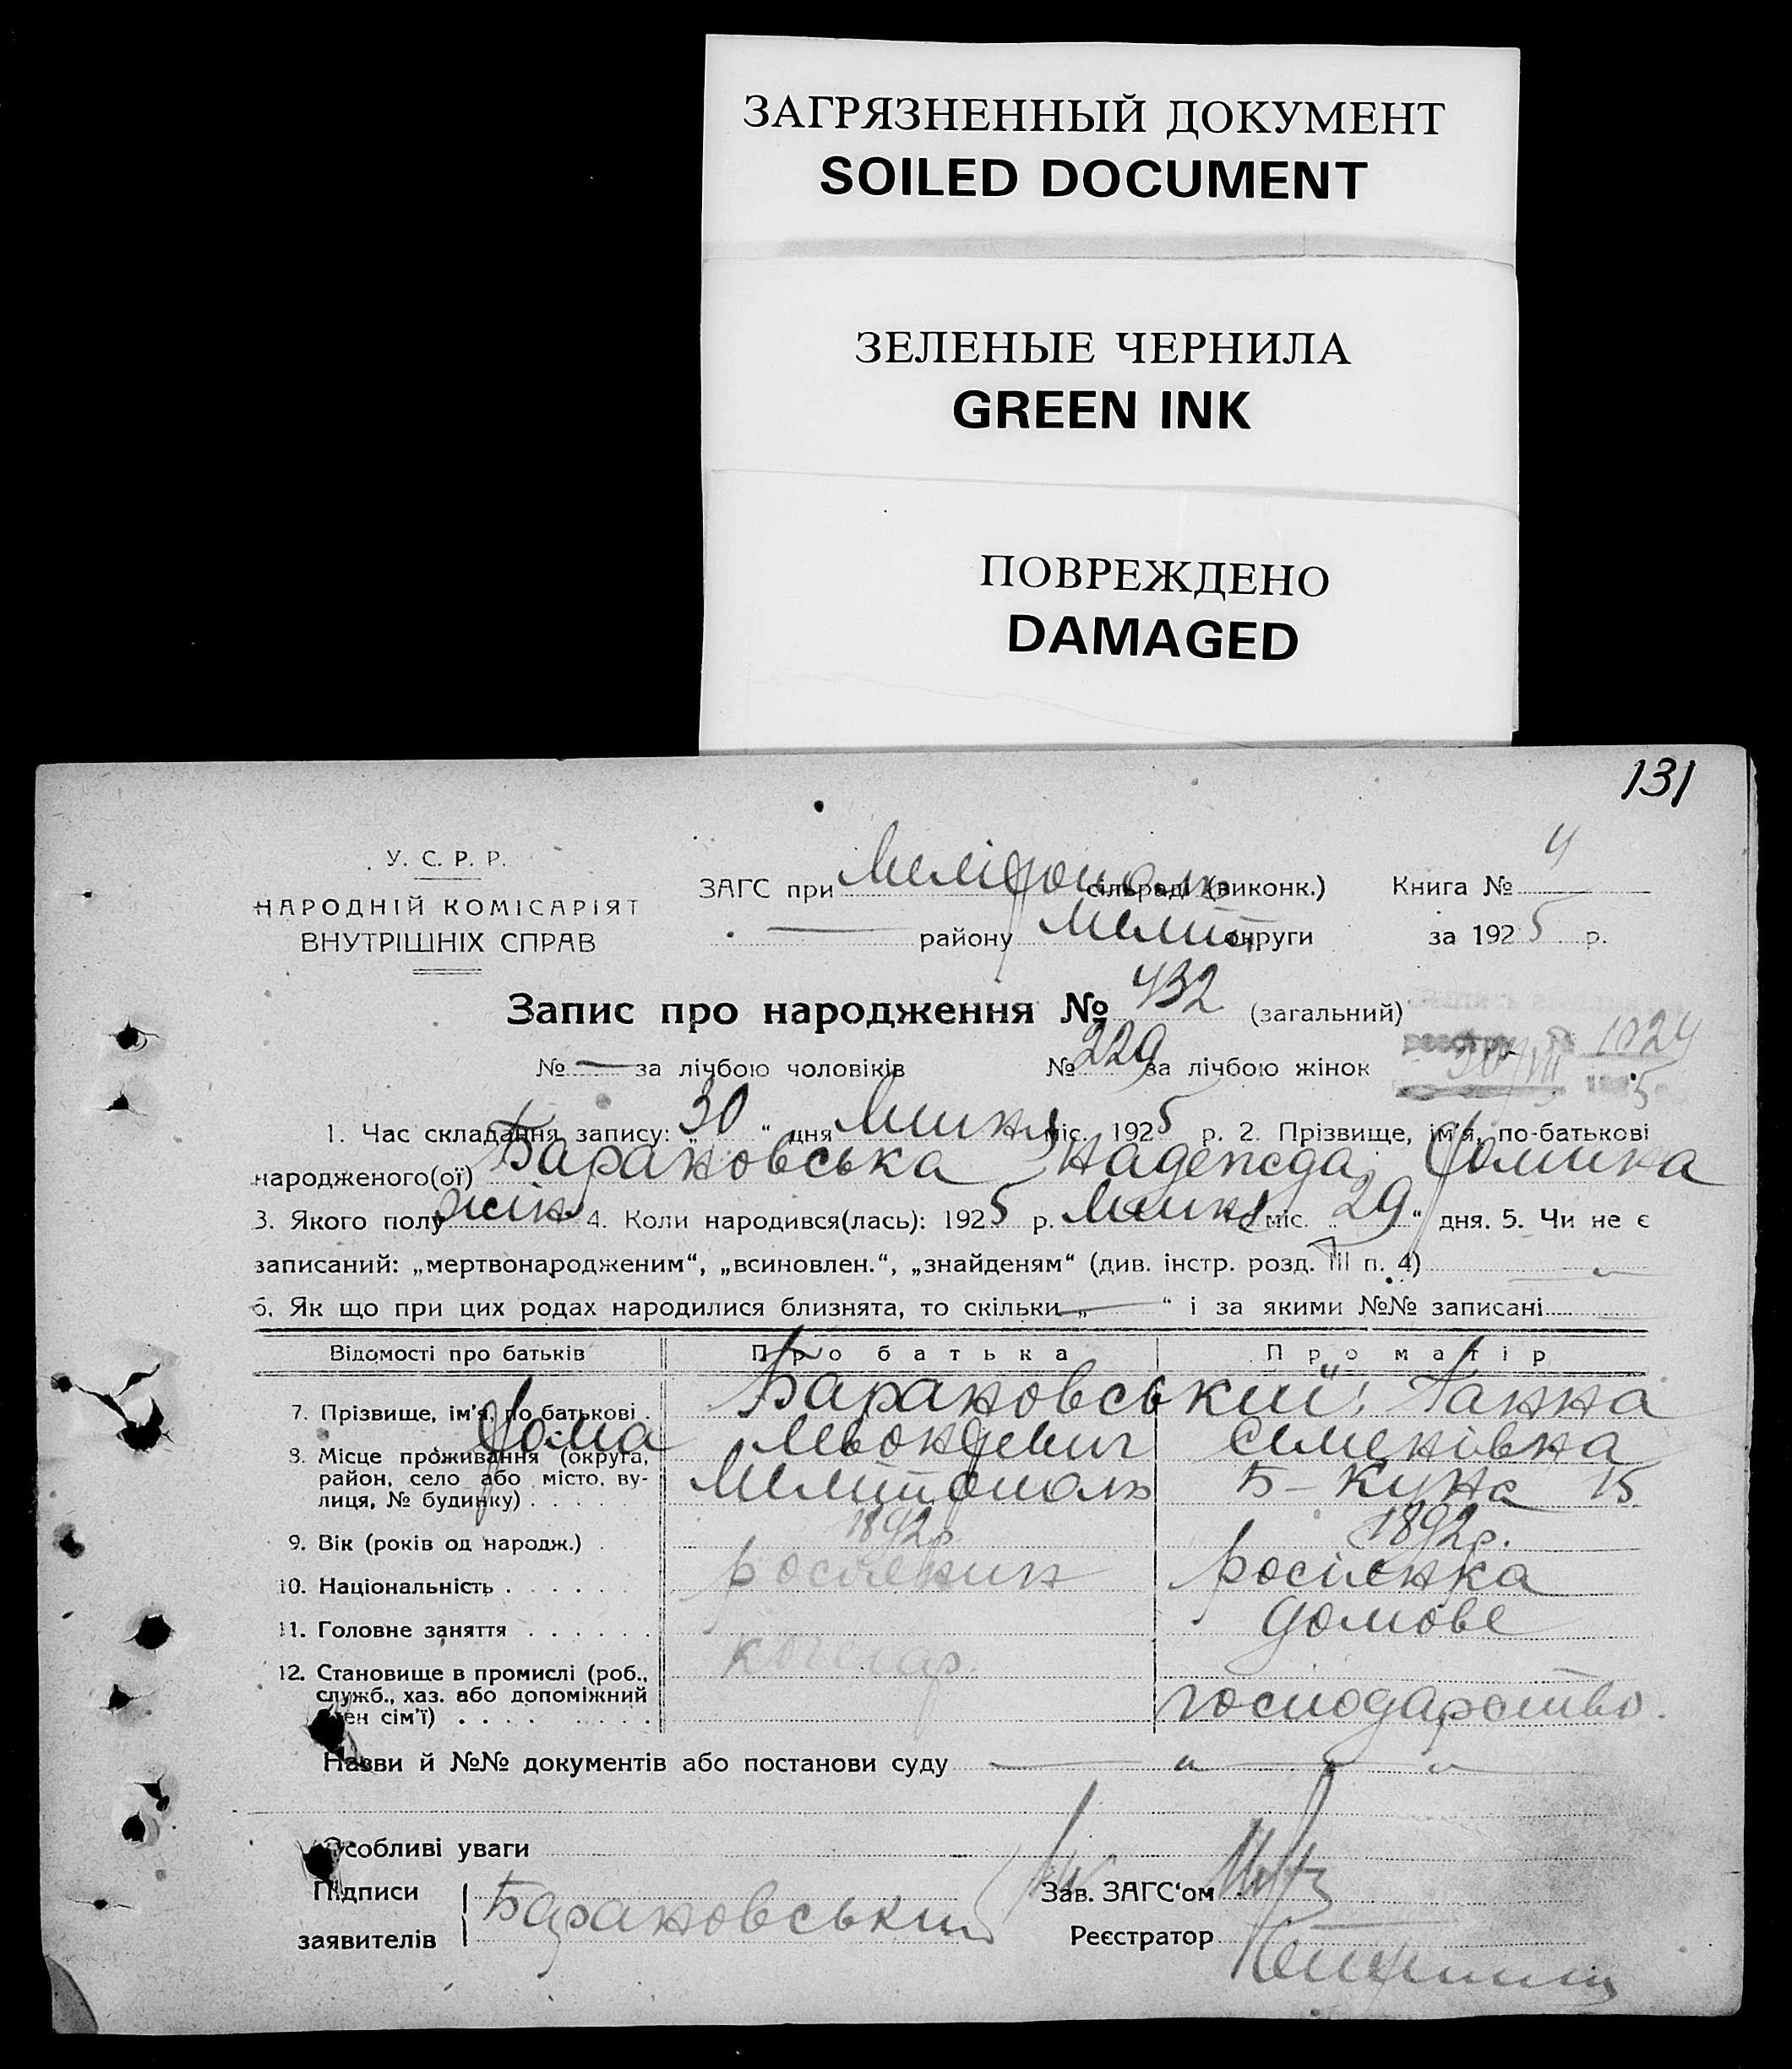 ЗАГРЯЗНЕННЫЙ ДОКУМЕНТ
SOILED DOCUMENT
ЗЕЛЕНЫЕ ЧЕРНИЛА
GREEN INK
ПОВРЕЖДЕНО
DAMAGED
131
У. С. Р. Р.
НАРОДНІЙ КОМІСАРІЯТ
ВНУТРІШНІХ СПРАВ
ЗАГС при сільраді (виконк.) Книга № 4
району Меліт. округи за 1925 р.
Запис про народження № 432 (загальний)
№ — за лічбою чоловіків № 229 за лічбою жінок
1024
1. Час складання запису: „30“ дня міс. 1925 р. 2. Прізвище, ім'я, по-батькові
народженого(ої) Барановська Надежда Фомина
3. Якого полу жін. 4. Коли народився(лась): 1925 р. міс. „29“ дня. 5. Чи не є
записаний: „мертвонародженим“, „всиновлен.“, „знайденям“ (див. інстр. розд. III п. 4)
6. Як що при цих родах народилися близнята, то скільки „—“ і за якими №№ записані
Відомості про батьків Про батька Про матір
7. Прізвище, ім'я, по батькові Барановський Ганна
Фома Семенівна
8. Місце проживання (округа, район, село або місто, вулиця, № будинку) Мелітополь Б-Куна 15
9. Вік (років од народж.) 1892р. 1892р.
10. Національність росіянин росіянка
11. Головне заняття домове
12. Становище в промислі (роб., служб., хаз. або допоміжний член сім'ї) кочегар. господарство.
Назви й №№ документів або постанови суду
Особливі уваги
Підписи
заявителів Барановський
Зав. ЗАГС'ом
Реєстратор